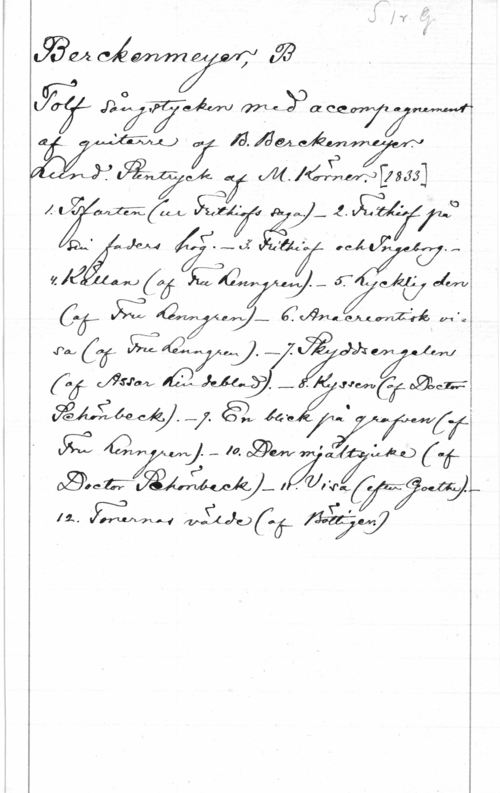 S 1 r G
Berckenmeyer, B
Tolf Sångstycken med accompagnement
af guitarre af B. Berckenmeyer.
Lund. Stentryck af M. Körner. [1833]
1. Isfarten (ur Frithiofs saga) - 2. Frithiof på
sin faders hög. - 3. Frithiof och Ingeborg. -
4. Källan (af Fru Lenngren). - 5. Lycklig den
(af Fru Lenngren) - 6. Anacreontisk vi-
sa (af Fru Lenngren). - 7. Skyddsengelen
(af Assar Lindeblad). - 8. Kyssen (af Doctor
Schönbeck). - 9. En blick på grafven (af
Fru Lenngren). - 10. Den mjältsjuke (af
Doctor Schönbeck) - 11. Visa (efter Goethe) -
12. Tonernas välde (af Böttiger)